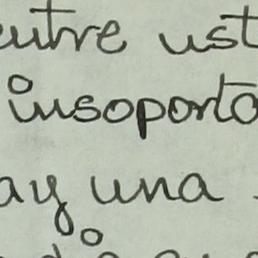 entre ust
insoporta
ay una